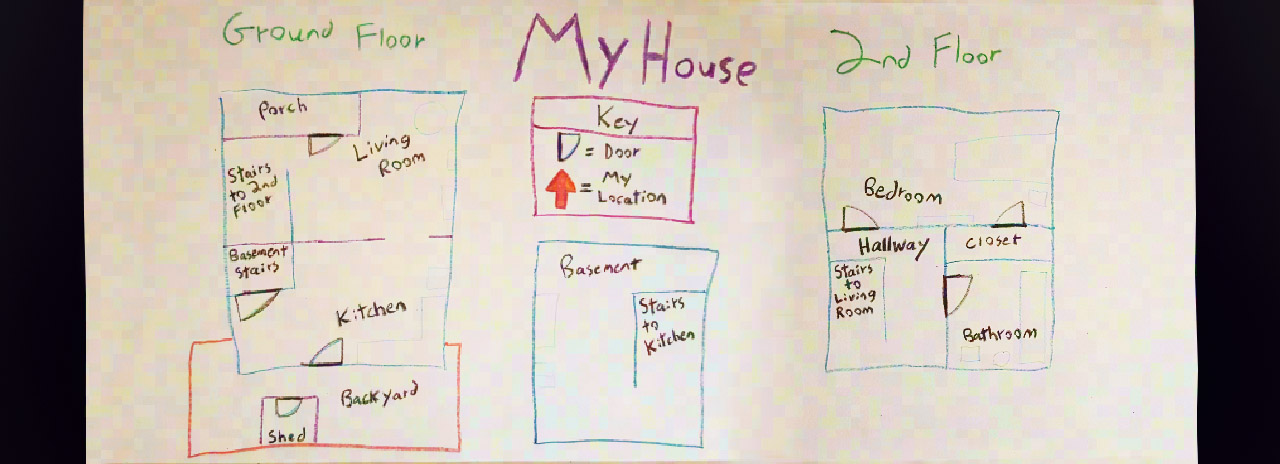 My House
Ground Floor
Porch
Living
Room
Stairs
to 2nd
Floor
Basement
Stairs
Kitchen
Backyard
Shed
Key
= Door
= My
Location
Basement
Stairs
to
Kitchen
2nd Floor
Bedroom
Hallway
Closet
Stairs
to
Living
Room
Bathroom